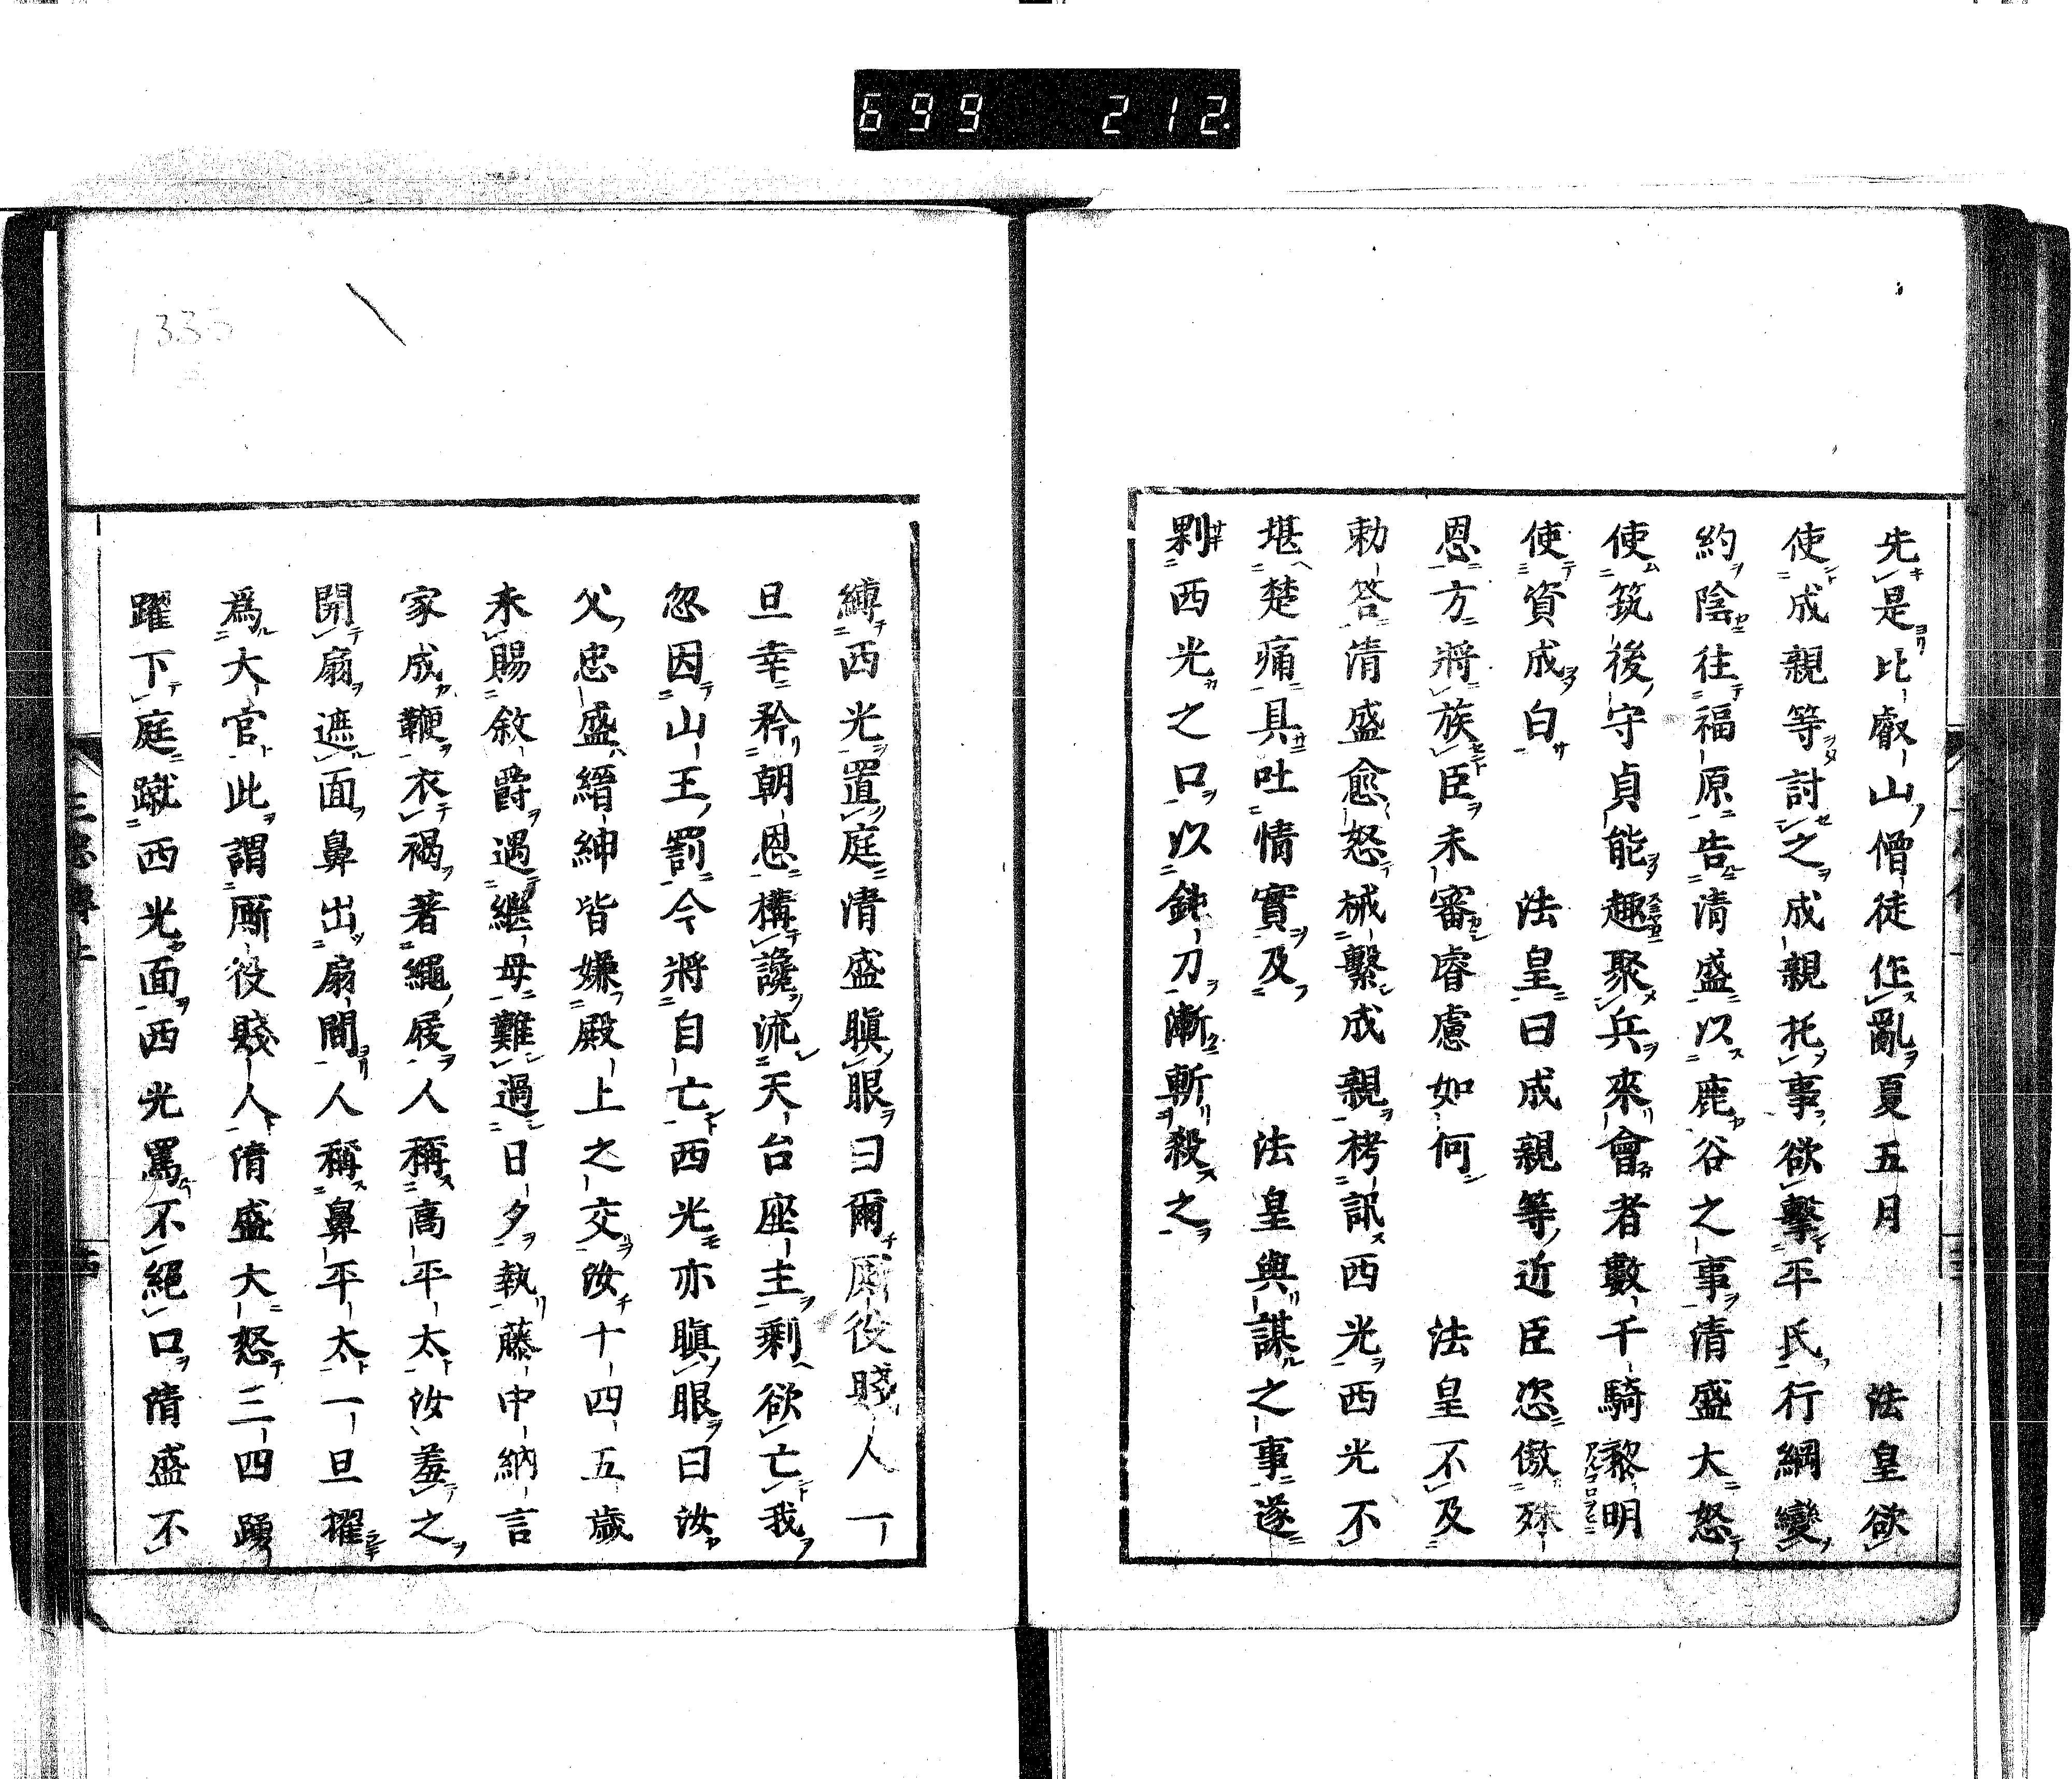 699 212.
先是比叡山僧徒作亂夏五月　法皇欲
使成親等討之成親托事欲擊平氏行綱變
約陰往福原告清盛以鹿谷之事清盛大怒
使筑後守貞能趣聚兵來會者數千騎黎明
使資成白　法皇曰成親等近臣恣傲殊
恩方將族臣未審睿慮如何　法皇不及
勅答清盛愈怒械繫成親栲訊西光西光不
堪楚痛具吐情實及　法皇與謀之事遂
剽西光之口以鈍刀漸斬殺之
縛西光置庭清盛瞋眼曰爾廝役賤人一
旦幸矜朝恩構讒流天台座主剩欲亡我
忽因山王罰今將自亡西光亦瞋眼曰汝
父忠盛縉紳皆嫌殿上之交汝十四五歲
未賜敘爵遇繼母難過日夕執藤中納言
家成鞭衣褐著繩屐人稱高平太汝羞之
開扇遮面鼻出扇間人稱鼻平太一旦擢
爲大官此謂廝役賤人清盛大怒三四踴
躍下庭蹴西光面西光罵不絕口清盛不
1335